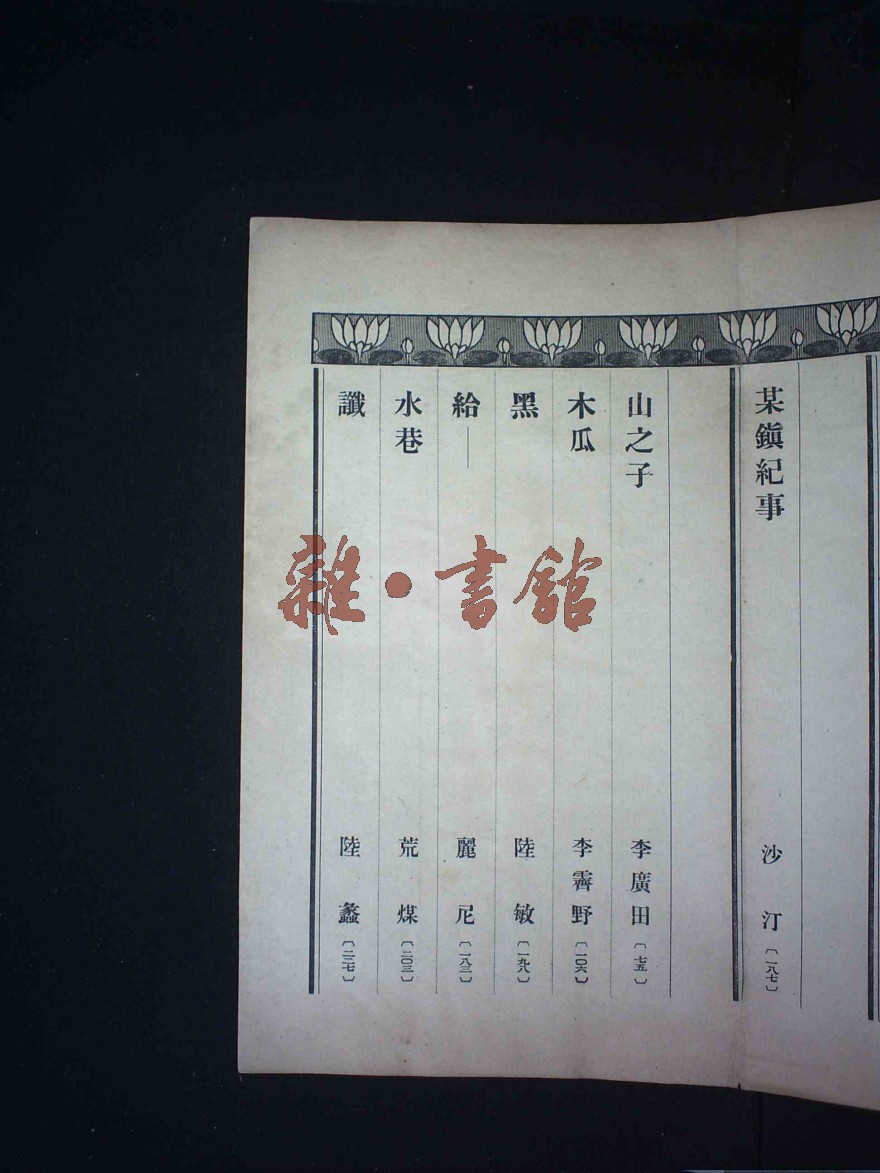 某鎭紀事 沙汀〔一八七〕
山之子 李廣田〔七五〕
木瓜 李霽野〔一〇六〕
黑 陸敏〔一九八〕
給—— 麗尼〔一八三〕
水巷 荒煤〔二〇三〕
讖 陸蠡〔二二七〕
雜·書館